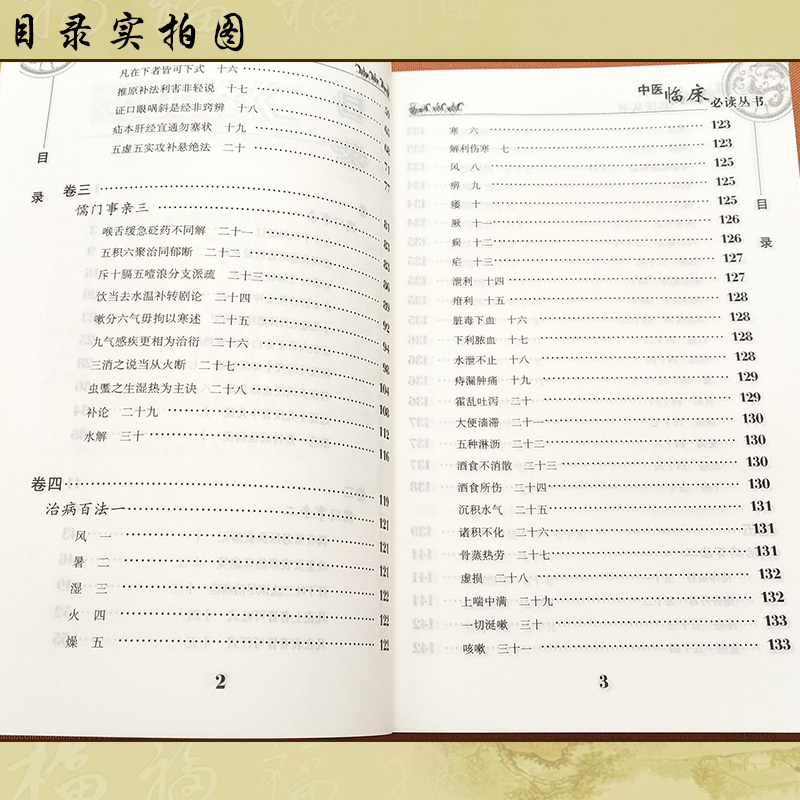 目录实拍图
目录
凡在下者皆可下式 十六
推原补法利害非轻说 十七
证口眼㖞斜是经非窍辨 十八
疝本肝经宜通勿塞状 十九 71
五虚五实攻补悬绝法 二十 77
卷三 81
儒门事亲三 83
喉舌缓急砭药不同解 二十一 83
五积六聚治同郁断 二十二 86
斥十膈五噎浪分支派疏 二十三 89
饮当去水温补转剧论 二十四 92
嗽分六气毋拘以寒述 二十五 94
九气感疾更相为治衍 二十六 98
三消之说当从火断 二十七 104
虫䘌之生湿热为主诀 二十八 108
补论 二十九 112
水解 三十 116
卷四 119
治病百法一 121
风 一 121
暑 二 121
湿 三 122
火 四 122
燥 五 122
2
中医临床必读丛书
目录
寒 六 123
解利伤寒 七 123
风 八 125
痹 九 125
痿 十 125
厥 十一 126
痫 十二 126
疟 十三 127
泄利 十四 127
疳利 十五 128
脏毒下血 十六 128
下利脓血 十七 128
水泄不止 十八 128
痔漏肿痛 十九 129
霍乱吐泻 二十 129
大便濇滞 二十一 130
五种淋沥 二十二 130
酒食不消散 二十三 130
酒食所伤 二十四 130
沉积水气 二十五 131
诸积不化 二十六 131
骨蒸热劳 二十七 131
虚损 二十八 132
上喘中满 二十九 132
一切涎嗽 三十 133
咳嗽 三十一 133
3